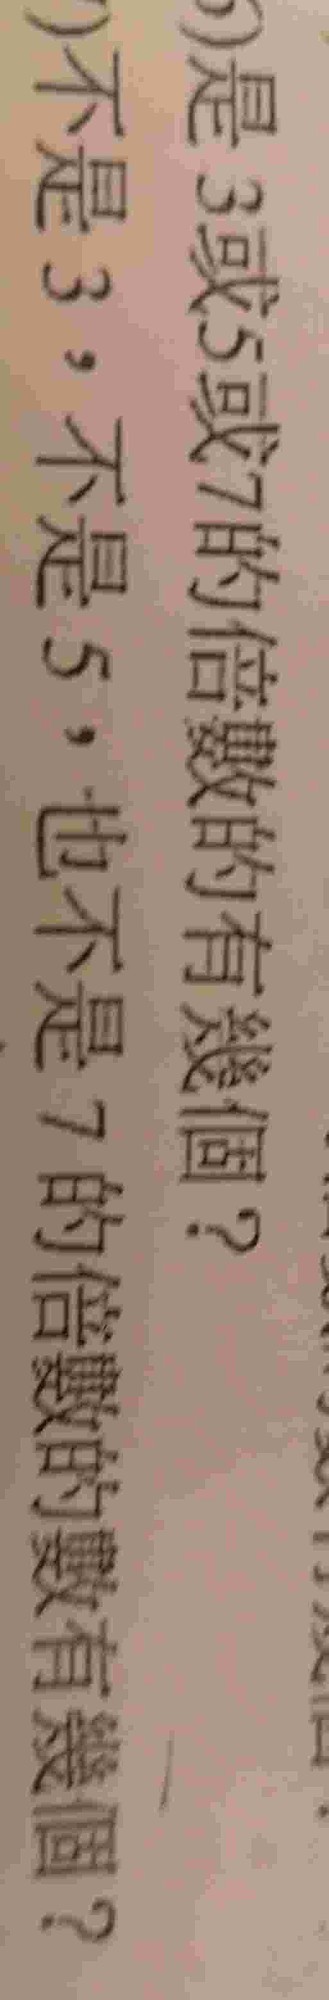 6)是3或5或7的倍數的有幾個？
)不是3，不是5，也不是7的倍數的數有幾個？